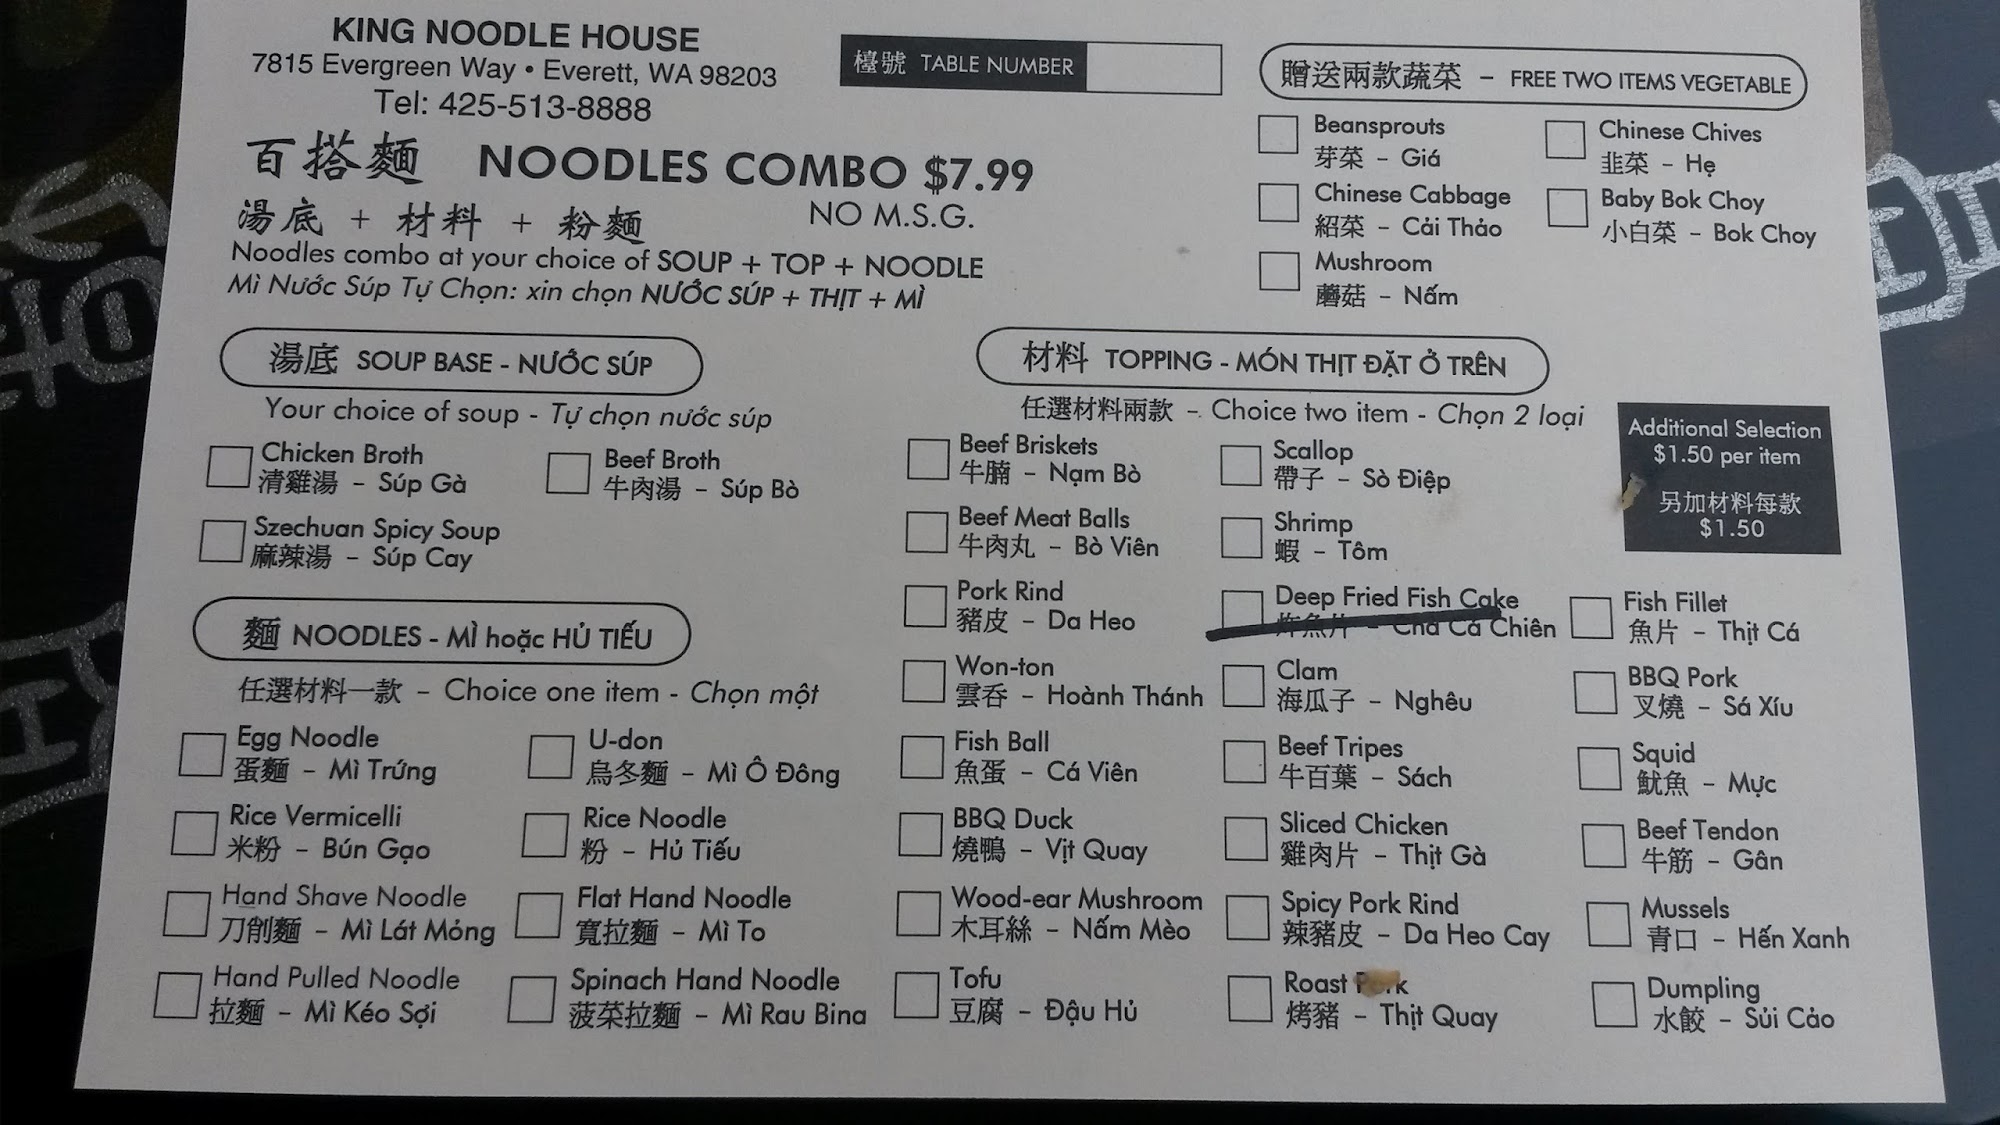 KING NOODLE HOUSE
7815 Evergreen Way • Everett, WA 98203
Tel: 425-513-8888
檯號 TABLE NUMBER
百搭麵 NOODLES COMBO $7.99
湯底 + 材料 + 粉麵 NO M.S.G.
Noodles combo at your choice of SOUP + TOP + NOODLE
Mì Nước Súp Tự Chọn: xin chọn NƯỚC SÚP + THỊT + MÌ
贈送兩款蔬菜 – FREE TWO ITEMS VEGETABLE
Beansprouts
芽菜 – Giá
Chinese Chives
韭菜 – Hẹ
Chinese Cabbage
紹菜 – Cải Thảo
Baby Bok Choy
小白菜 – Bok Choy
Mushroom
蘑菇 – Nấm
湯底 SOUP BASE - NƯỚC SÚP
Your choice of soup - Tự chọn nước súp
Chicken Broth
清雞湯 – Súp Gà
Beef Broth
牛肉湯 – Súp Bò
Szechuan Spicy Soup
麻辣湯 – Súp Cay
麵 NOODLES - MÌ hoặc HỦ TIẾU
任選材料一款 – Choice one item - Chọn một
Egg Noodle
蛋麵 – Mì Trứng
U-don
烏冬麵 – Mì Ô Đông
Rice Vermicelli
米粉 – Bún Gạo
Rice Noodle
粉 – Hủ Tiếu
Hand Shave Noodle
刀削麵 – Mì Lát Mỏng
Flat Hand Noodle
寬拉麵 – Mì To
Hand Pulled Noodle
拉麵 – Mì Kéo Sợi
Spinach Hand Noodle
菠菜拉麵 – Mì Rau Bina
材料 TOPPING - MÓN THỊT ĐẶT Ở TRÊN
任選材料兩款 – Choice two item - Chọn 2 loại
Additional Selection
$1.50 per item
另加材料每款
$1.50
Beef Briskets
牛腩 – Nạm Bò
Scallop
帶子 – Sò Điệp
Beef Meat Balls
牛肉丸 – Bò Viên
Shrimp
蝦 – Tôm
Pork Rind
豬皮 – Da Heo
Deep Fried Fish Cake
炸魚片 – Chả Cá Chiên
Fish Fillet
魚片 – Thịt Cá
Won-ton
雲吞 – Hoành Thánh
Clam
海瓜子 – Nghêu
BBQ Pork
叉燒 – Sá Xíu
Fish Ball
魚蛋 – Cá Viên
Beef Tripes
牛百葉 – Sách
Squid
魷魚 – Mực
BBQ Duck
燒鴨 – Vịt Quay
Sliced Chicken
雞肉片 – Thịt Gà
Beef Tendon
牛筋 – Gân
Wood-ear Mushroom
木耳絲 – Nấm Mèo
Spicy Pork Rind
辣豬皮 – Da Heo Cay
Mussels
青口 – Hến Xanh
Tofu
豆腐 – Đậu Hủ
Roast Pork
烤豬 – Thịt Quay
Dumpling
水餃 – Sủi Cảo